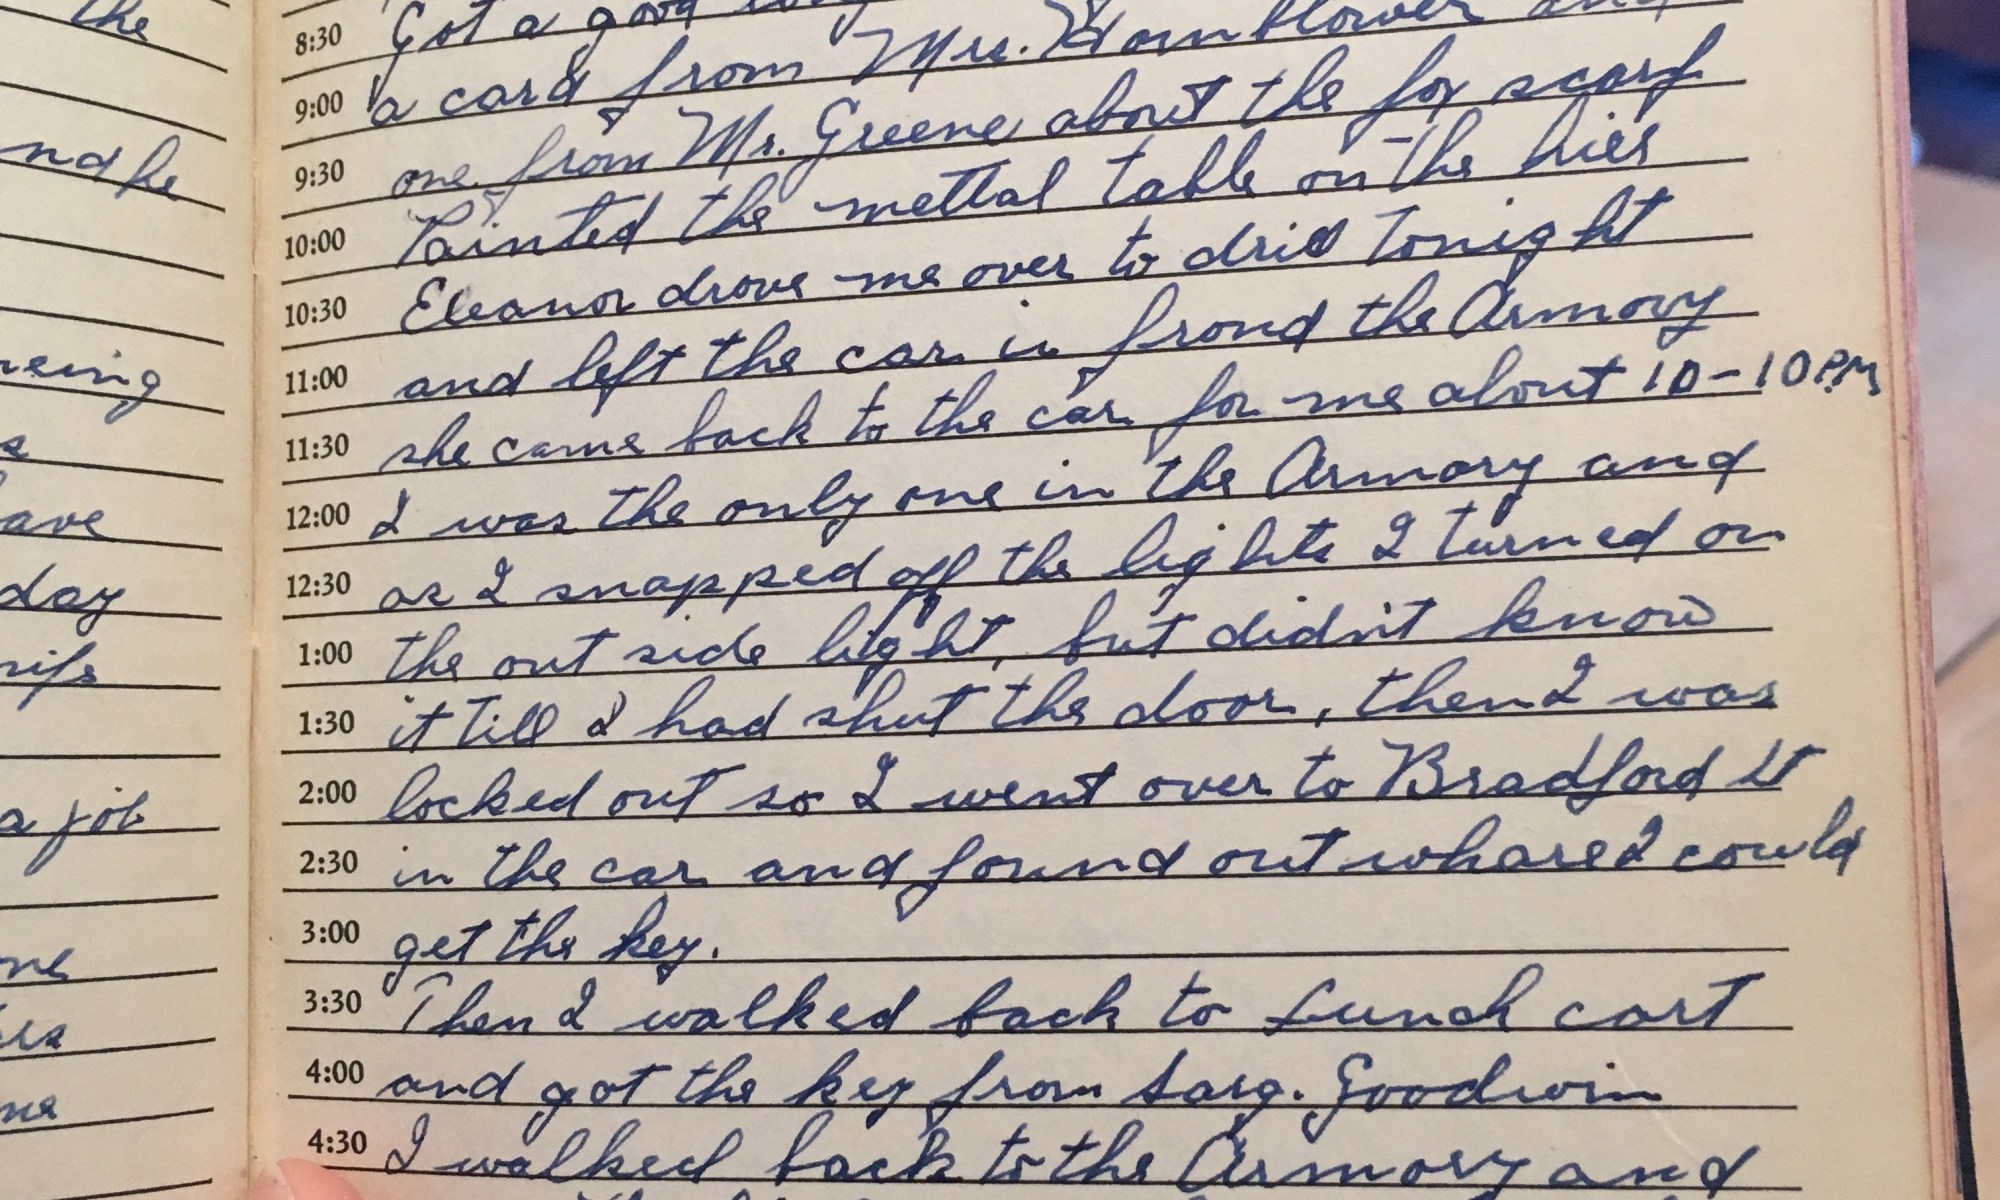 the
nd he
a job
day
ave
8:30 Got a good
9:00 a card from Mrs. Hornblower and
9:30 one from Mr. Greene about the fox scarf
10:00 Painted the mettal table on the
10:30 Eleanor drove me over to drill tonight
11:00 and left the car in frond the Armory
11:30 she came back to the car for me about 10-10 PM
12:00 I was the only one in the Armory and
12:30 as I snapped off the lights I turned on
1:00 the out side light, but didn't know
1:30 it till I had shut the door, then I was
2:00 locked out so I went over to Bradford St
2:30 in the car and found out whare I could
3:00 get the key.
3:30 Then I walked back to Lunch cart
4:00 and got the key from Sarg. Goodwin
4:30 I walked back to the Armory and